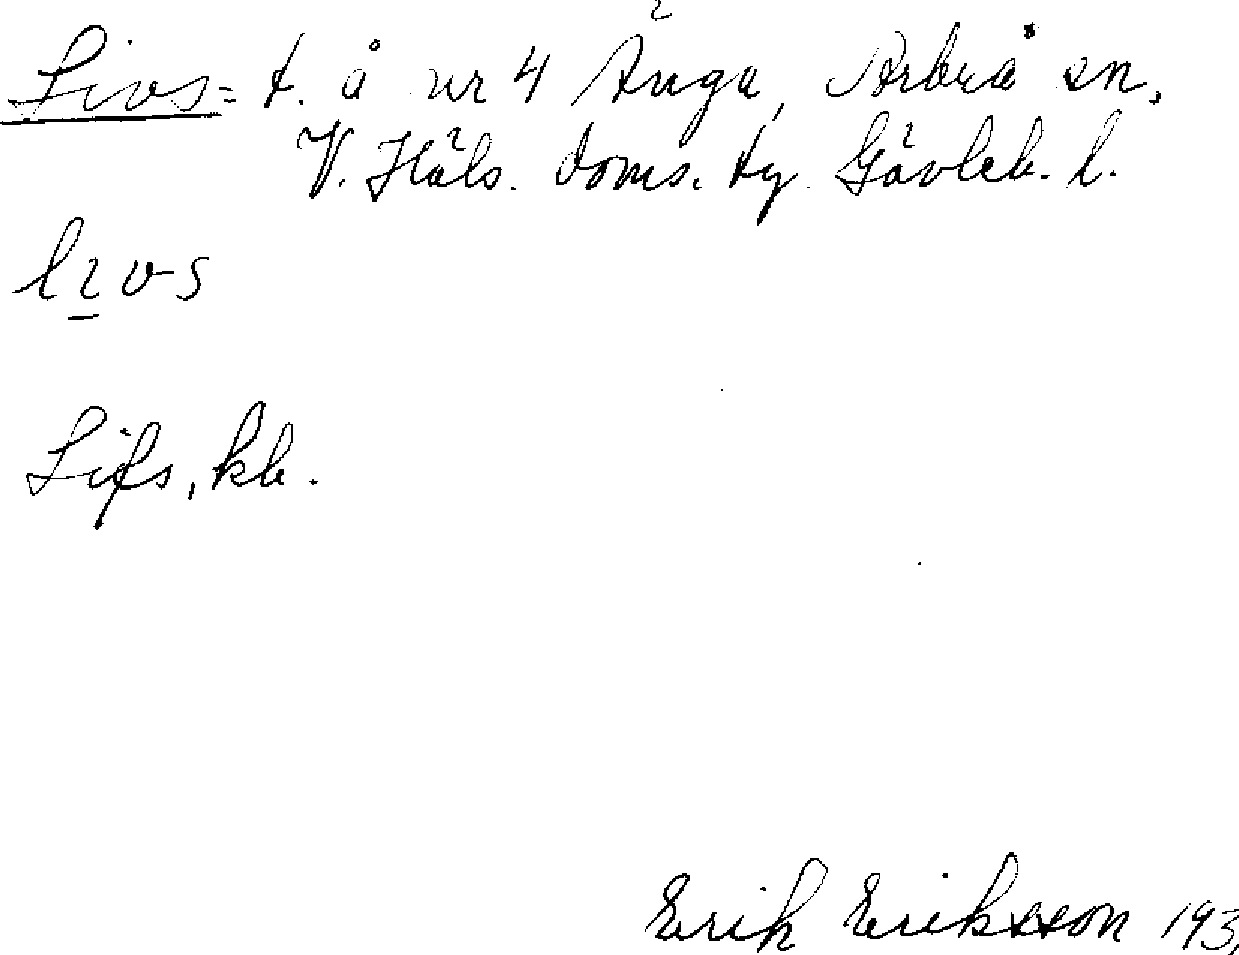 Livs= t. å nr 4 Änga, Arbrå sn.
V. Häls. doms. tg. Gävleb. l.
livs
Lifs, kb.
Erik Eriksson 193